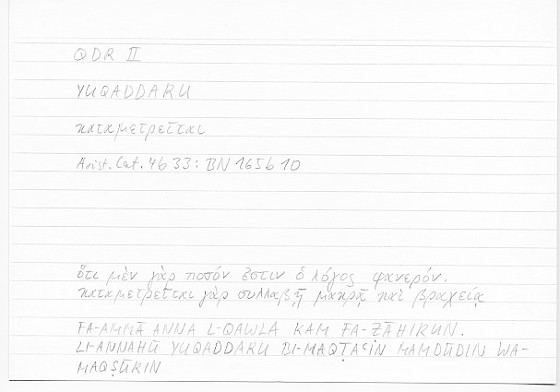 QDR II
YUQADDARU
καταμετρεῖται
Arist. Cat. 4b 33: BN 165b 10
ὅτι μὲν γὰρ ποσόν ἐστιν ὁ λόγος φανερόν.
καταμετρεῖται γὰρ συλλαβῇ μακρᾷ καὶ βραχείᾳ
FA-AMMĀ ANNA L-QAWLA KAM FA-ẒĀHIRUN.
LI-ANNAHŪ YUQADDARU BI-MAQṬAʿIN MAMDŪDIN WA-
MAQṢŪRIN